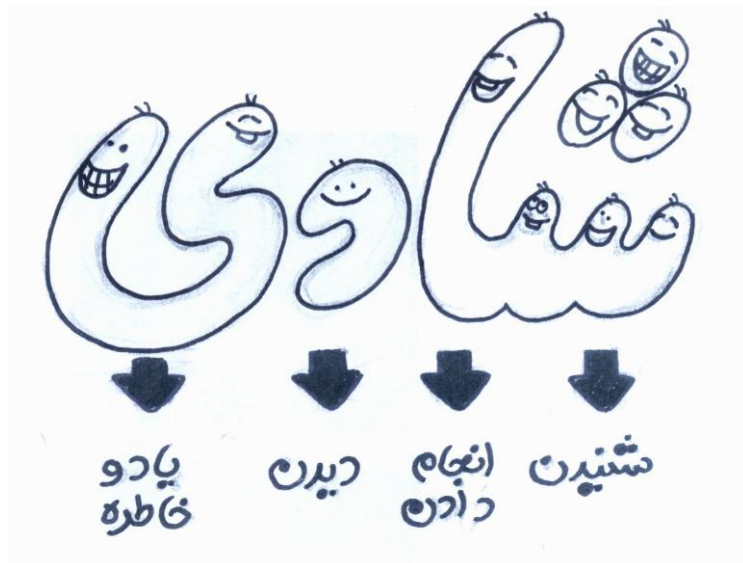 شادی
شنیدن
انجام دادن
دیدن
یاد و خاطره